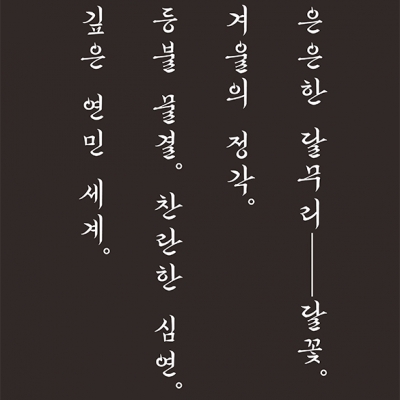 은은한 달무리──달꽃。
겨울의 정각。
등불 물결。찬란한 심연。
깊은 연민 세계。